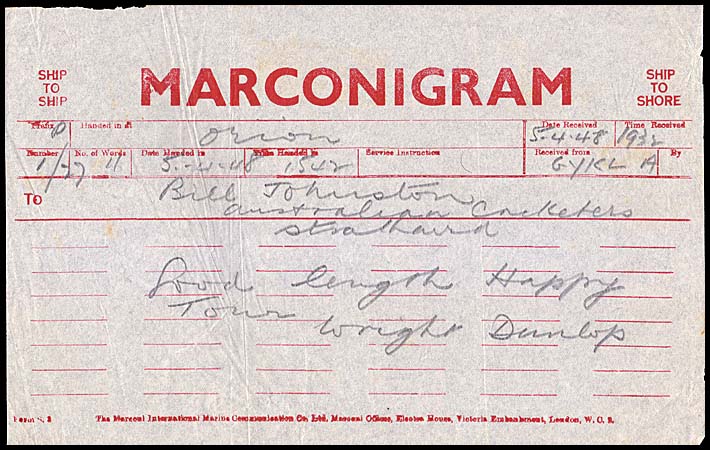 SHIP TO SHIP
MARCONIGRAM
SHIP TO SHORE
Prefix P Handed in at Orion Date Received 5-4-48 Time Received 1932
Number 1/27 No. of Words 11 Date Handed in 5-4-48 Time Handed in 1542 Service Instruction Received from GYKL A By
To Bill Johnston
Australian Cricketers
Strathaird
Good length Happy
Tour Wright Dunlop
The Marconi International Marine Communication Co. Ltd., Marconi Offices, Electra House, Victoria Embankment, London, W.C.2.